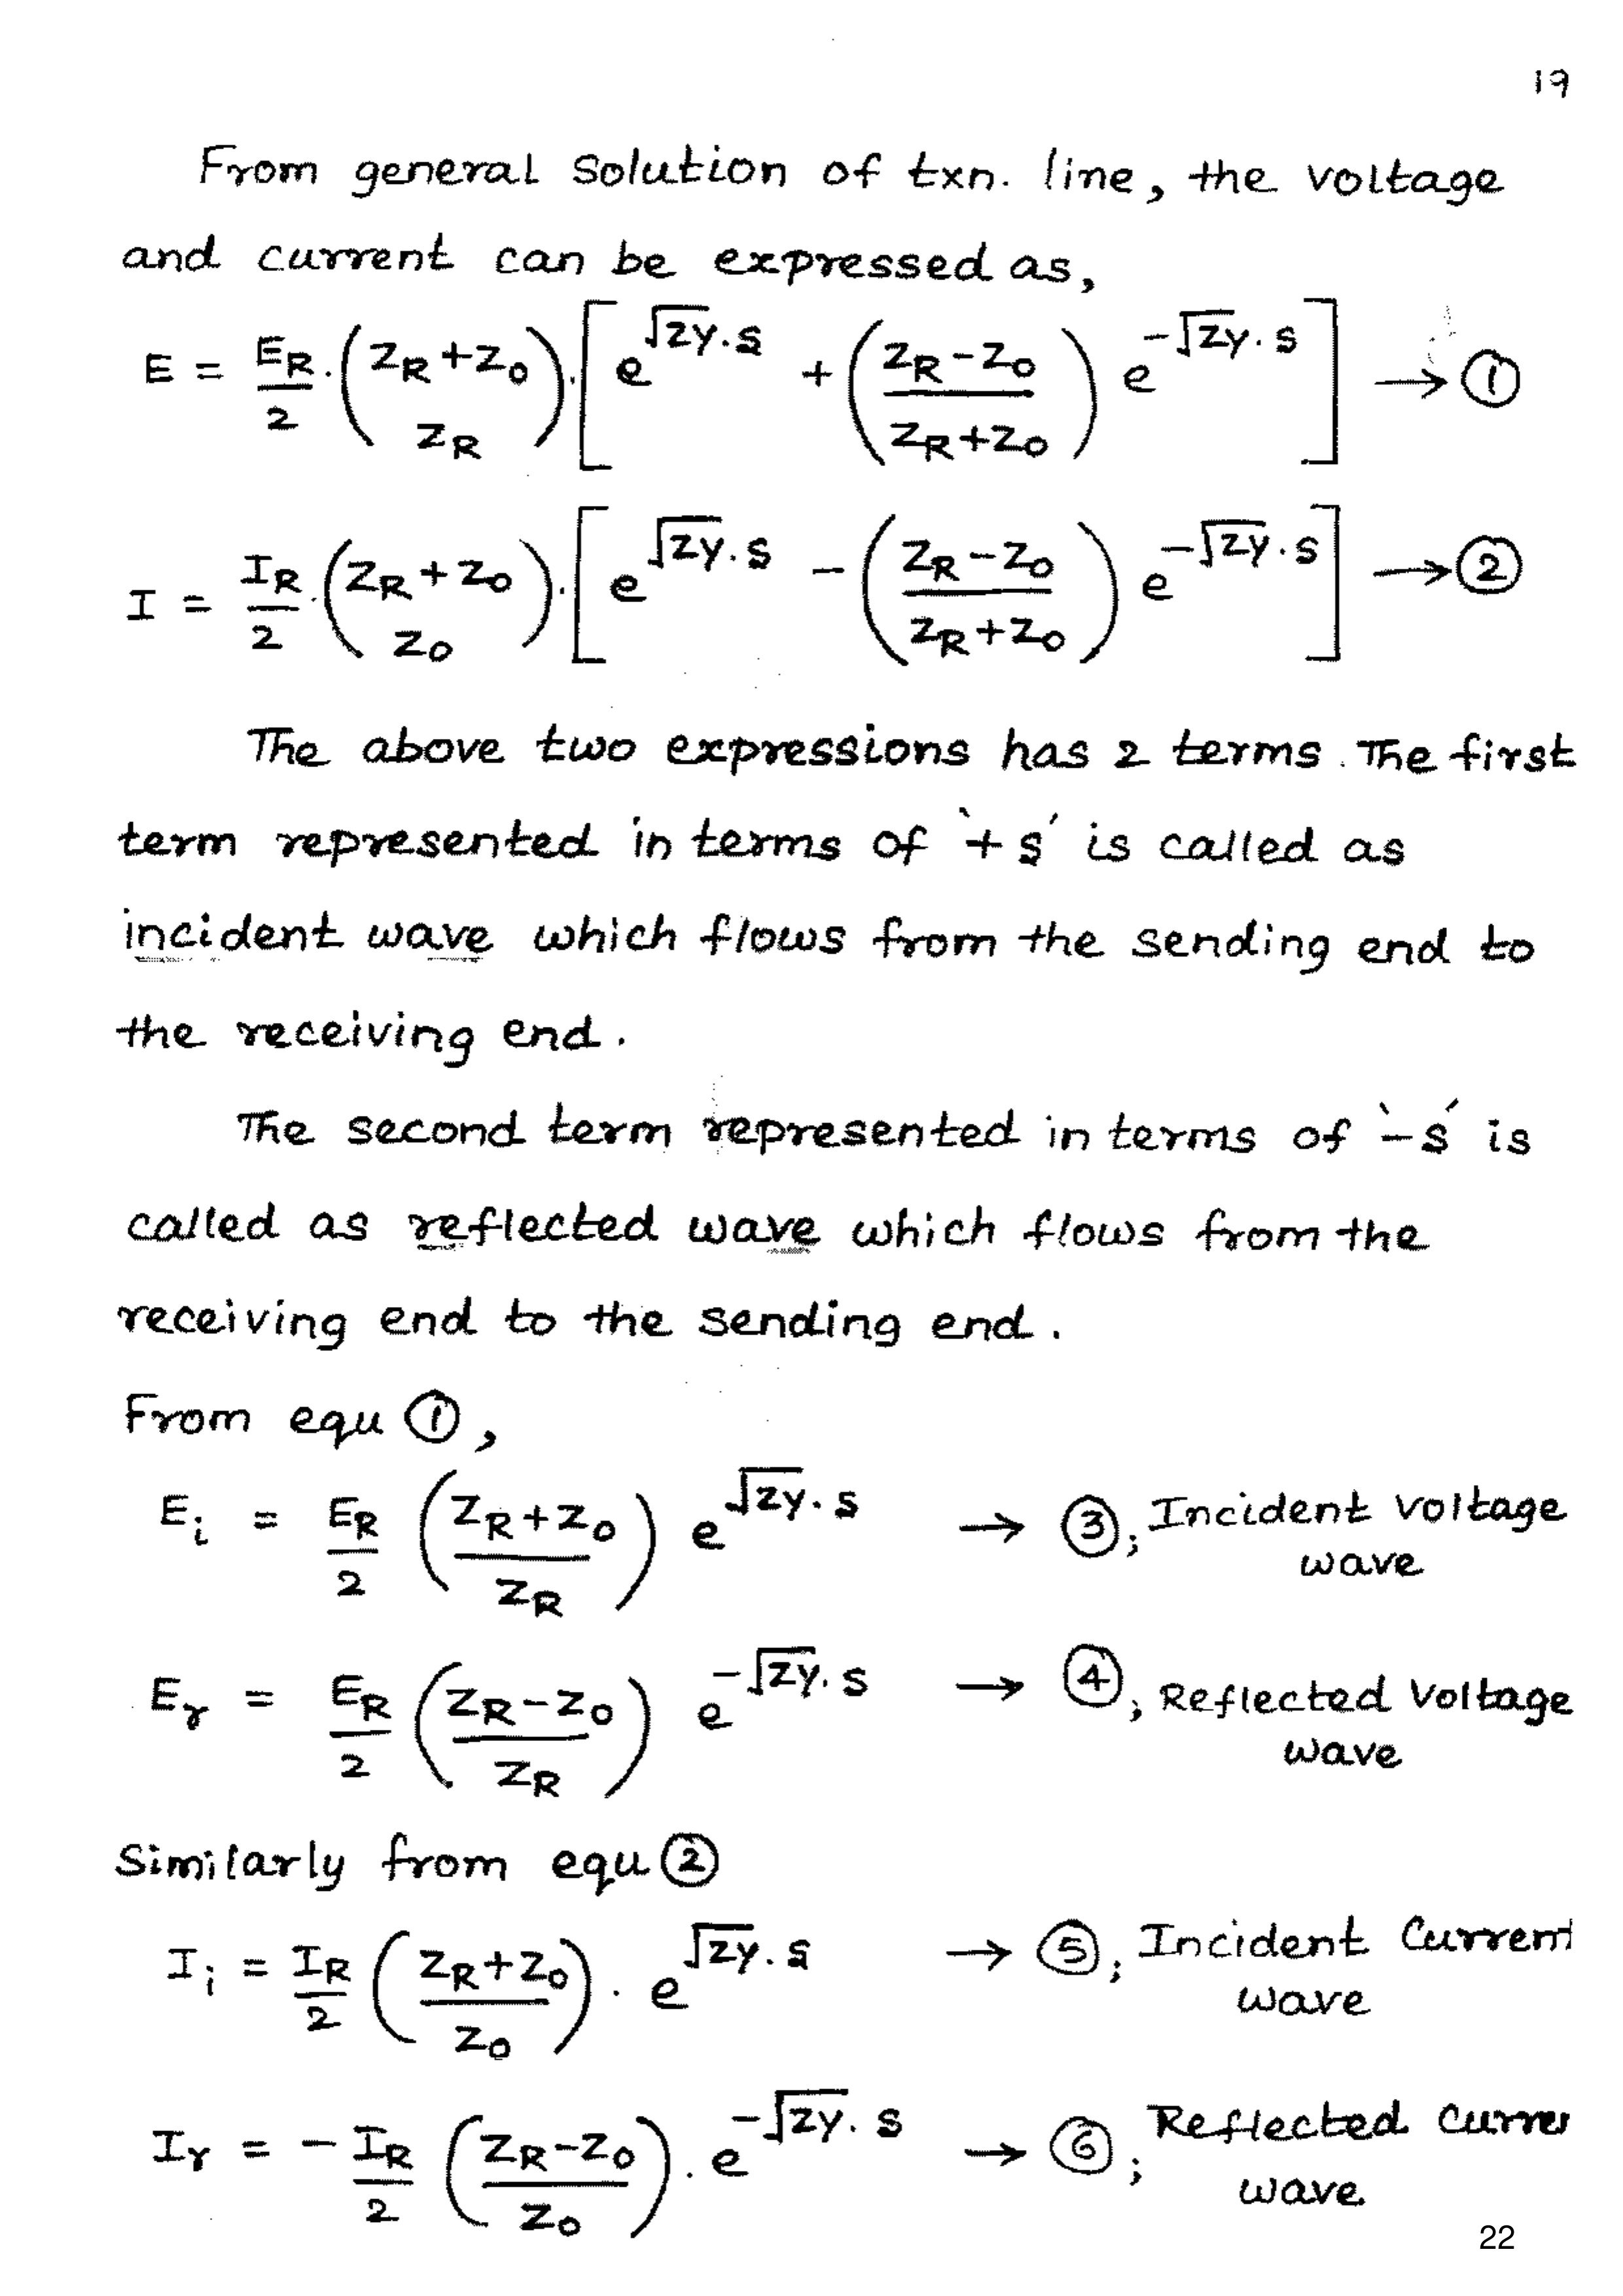 19
From general solution of txn. line, the voltage
and current can be expressed as,
E = E_R/2 . (Z_R+Z_0 / Z_R) . [ e^{√zy.s} + (Z_R-Z_0 / Z_R+Z_0) e^{-√zy.s} ] → ①
I = I_R/2 . (Z_R+Z_0 / Z_0) . [ e^{√zy.s} - (Z_R-Z_0 / Z_R+Z_0) e^{-√zy.s} ] → ②
The above two expressions has 2 terms. The first
term represented in terms of '+s' is called as
incident wave which flows from the sending end to
the receiving end.
The second term represented in terms of '-s' is
called as reflected wave which flows from the
receiving end to the sending end.
From equ ①,
E_i = E_R/2 (Z_R+Z_0 / Z_R) e^{√zy.s} → ③; Incident voltage
wave
E_r = E_R/2 (Z_R-Z_0 / Z_R) e^{-√zy.s} → ④; Reflected Voltage
wave
Similarly from equ ②
I_i = I_R/2 (Z_R+Z_0 / Z_0) . e^{√zy.s} → ⑤; Incident Current
wave
I_r = - I_R/2 (Z_R-Z_0 / Z_0) . e^{-√zy.s} → ⑥; Reflected Curre
wave
22